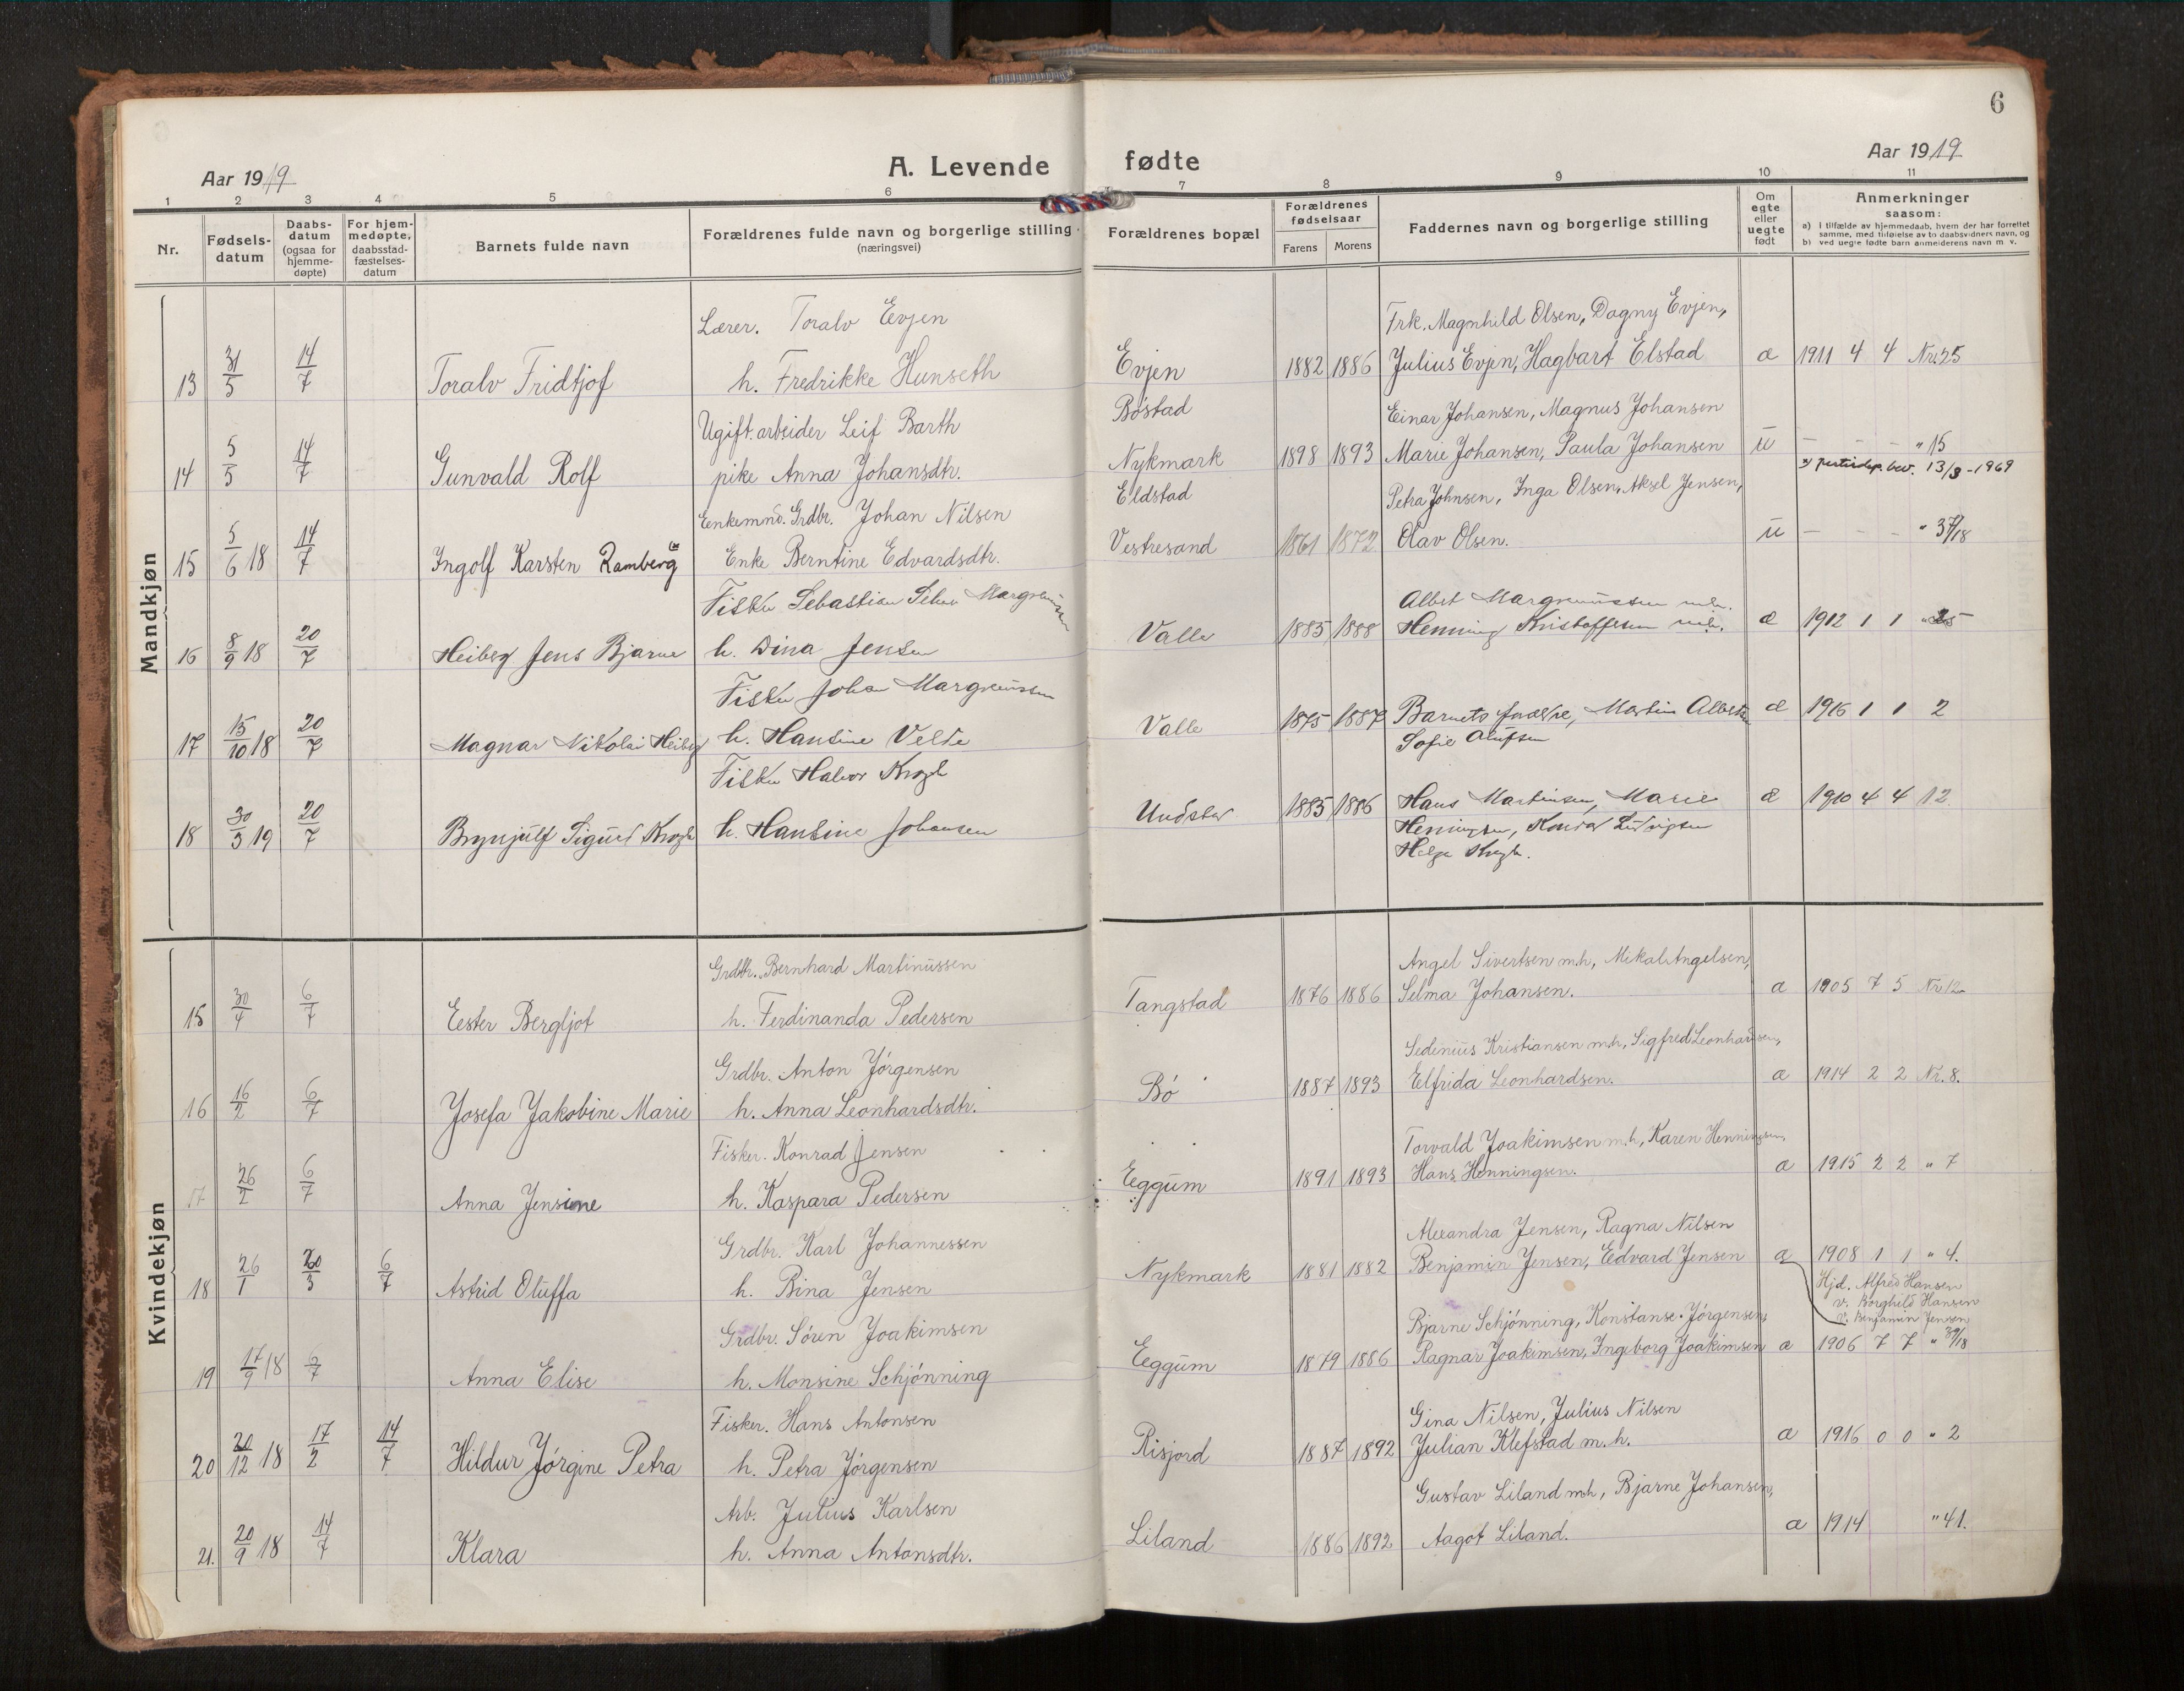 6
Aar 1919
A. Levende fødte
Aar 1919
1 2 3 4 5 6 7 8 9 10 11
Nr.
Fødsels-
datum
Daabs-
datum
(ogsaa for
hjemme-
døpte)
For hjem-
medøpte,
daabsstad-
fæstelses-
datum
Barnets fulde navn
Forældrenes fulde navn og borgerlige stilling
(næringsvei)
Forældrenes bopæl
Forældrenes
fødselsaar
Farens Morens
Faddernes navn og borgerlige stilling
Om
egte
eller
uegte
født
Anmerkninger
saasom:
a) I tilfælde av hjemmedaab, hvem der har forrettet
samme, med tilføielse av to daabsvidners navn, og
b) ved uegte fødte barn anmelderens navn m. v.
Mandkjøn
Lærer. Toralv Evjen
Frk. Magnhild Olsen, Dagny Evjen,
13 31/5 14/7 Toralv Fridtjof h. Fredrikke Hunseth Evjen 1882 1886 Julius Evjen, Hagbart Elstad æ 1911 4 4 Nr. 25
Ugift. arbeider Leif Barth Bøstad Einar Johansen, Magnus Johansen
14 5/5 14/7 Gunvald Rolf pike Anna Johansdtr. Nykmark 1898 1893 Marie Johansen, Paula Johansen u - - - " 15
bev. 13/3-1969
Enkemnd. Grdbr. Johan Nilsen Eldstad Petra Johnsen, Inga Olsen, Aksel Jensen,
15 5/6 18 14/7 Ingolf Karsten Ramberg Enke Berntine Edvardsdtr. Vestresand 1861 1872 Olav Olsen. u - - - " 37/18
Fisker Sebastian Margreussen
Albert Margreussen m.h.
16 8/9 18 20/7 Heiberg Jens Bjarne h. Dina Jensen Valle 1885 1888 Henning Kristoffersen m.h. æ 1912 1 1
Fisker Johan Margreussen
17 15/10 18 20/7 Magnar Nikolai Heiberg h. Hansine Velde Valle 1875 1887 Barnets forældre, Martin Albertsen æ 1916 1 1 2
Sofie Olufsen
Fisker Halvor Krogh
18 30/3 19 20/7 Brynjulf Sigurd Krogh h. Hansine Johansen Undstad 1885 1886 Hans Martinsen, Marie æ 1910 4 4 12
Henningsen, Konrad Ludvigsen
Helga Krogh.
Kvindekjøn
Grdbr. Bernhard Martinussen
Angel Sivertsen m.h, Mekal Angelsen,
15 30/4 6/7 Ester Bergljot h. Ferdinanda Pedersen Tangstad 1876 1886 Selma Johansen. æ 1905 7 5 Nr. 12
Grdbr. Anton Jørgensen
Sedenius Kristiansen m.h, Sigfred Leonhardsen,
16 16/2 6/7 Josefa Jakobine Marie h. Anna Leonhardsdtr. Bø 1887 1893 Elfrida Leonhardsen. æ 1914 2 2 Nr. 8.
Fisker. Konrad Jensen
Torvald Joakimsen m.h, Karen Henningsen,
17 26/2 6/7 Anna Jensine h. Kaspara Pedersen Eggum 1891 1893 Hans Henningsen. æ 1915 2 2 " 7
Grdbr. Karl Johannessen
Alexandra Jensen, Ragna Nilsen
18 26/1 20/3 6/7 Astrid Oluffa h. Bina Jensen Nykmark 1881 1882 Benjamin Jensen, Edvard Jensen æ 1908 1 1 " 4.
Hjd. Alfred Hansen
v. Borghild Hansen
v. Benjamin Jensen
Grdbr. Søren Joakimsen
Bjarne Schjønning, Konstanse Jørgensen,
19 17/9 18 6/7 Anna Elise h. Monsine Schjønning Eggum 1879 1886 Ragnar Joakimsen, Ingeborg Joakimsen æ 1906 7 7 " 39/18
Fisker. Hans Antonsen
Gina Nilsen, Julius Nilsen
20 20/12 18 17/2 14/7 Hildur Jørgine Petra h. Petra Jørgensen Risjord 1887 1892 Julian Klefstad m.h. æ 1916 0 0 " 2
Arb. Julius Karlsen
Gustav Liland m.h, Bjarne Johansen,
21. 20/9 18 14/7 Klara h. Anna Antonsdtr. Liland 1886 1892 Aagot Liland. æ 1914 " 41.